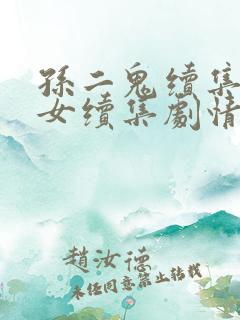 孫二鬼續集
女續集劇情
趙汝德
未經同意禁止轉載